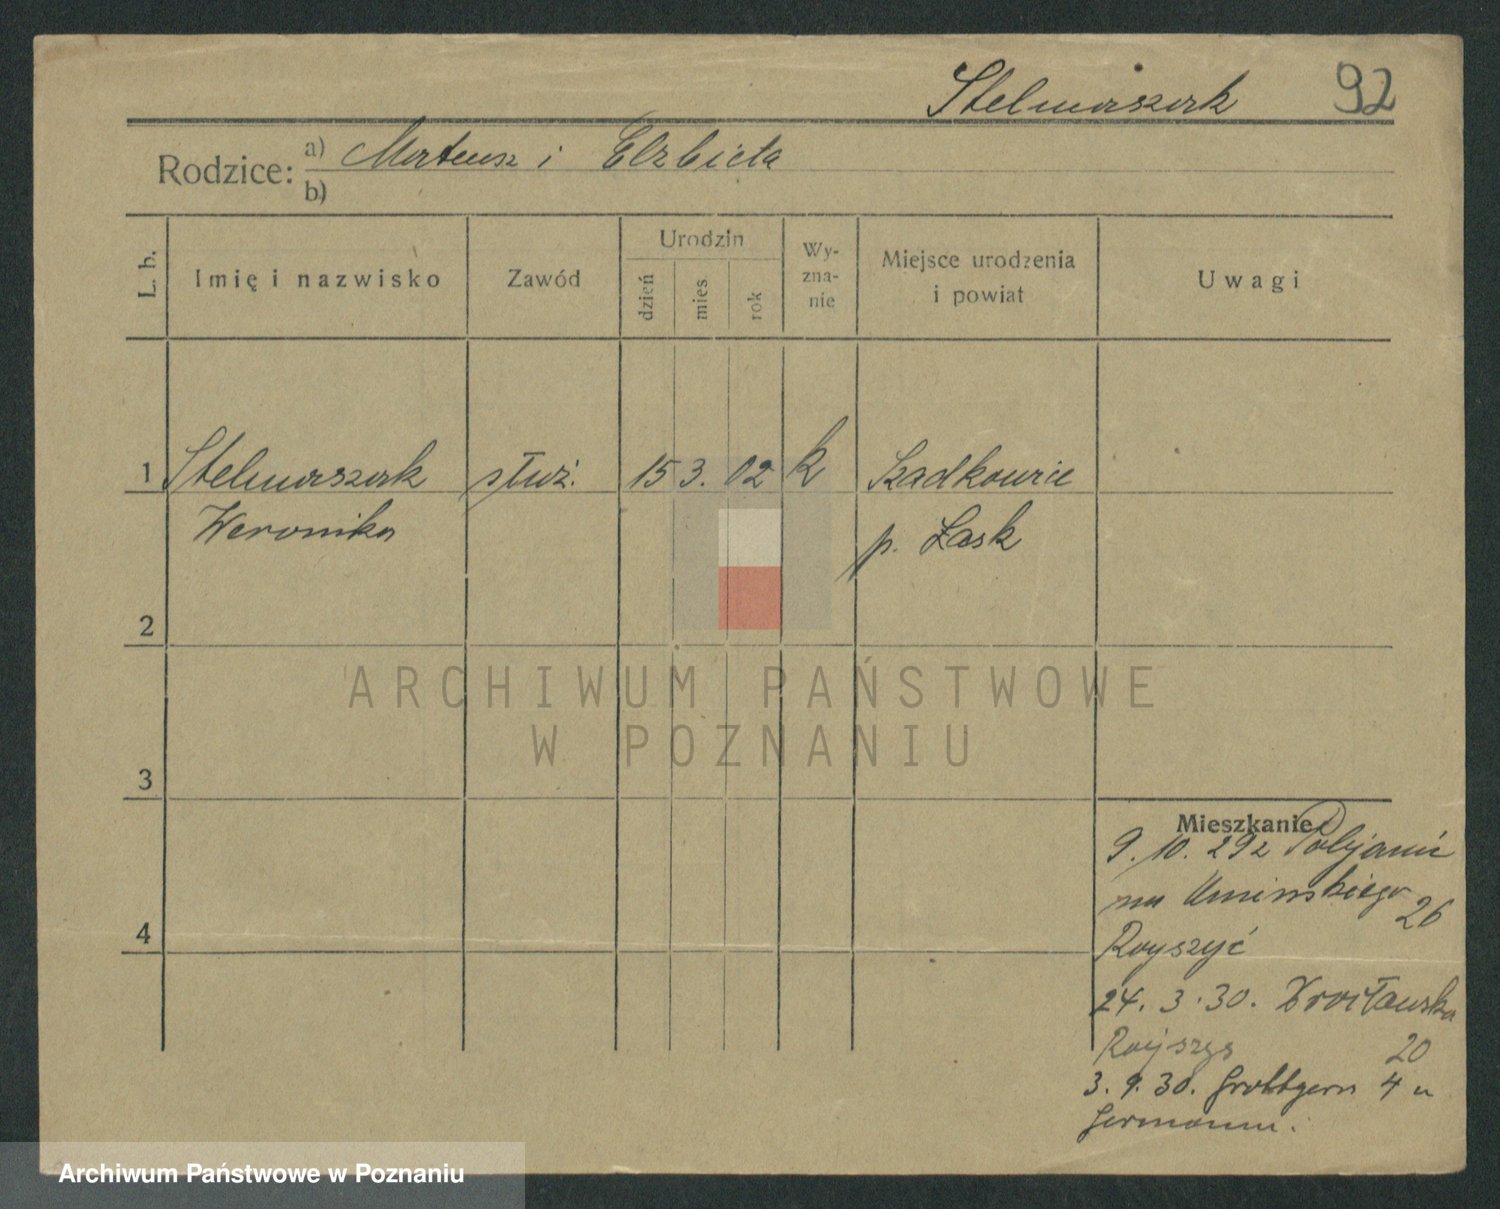 Stelmaszak 92
Rodzice: a) Mateusz i Elżbieta
b)
L. b. Imię i nazwisko Zawód Urodzin dzień mies rok Wy-zna-nie Miejsce urodzenia i powiat Uwagi
1 Stelmaszak służ. 15 3. 02 k Szadkowice
Weronika p. Łask
2
3
4
Mieszkanie
9. 10. 29 z
na Umińskiego 26
24. 3. 30. Wrocławska
20
3. 9. 30. Grottgera 4 u
Germann.
ARCHIWUM PAŃSTWOWE
W POZNANIU
Archiwum Państwowe w Poznaniu